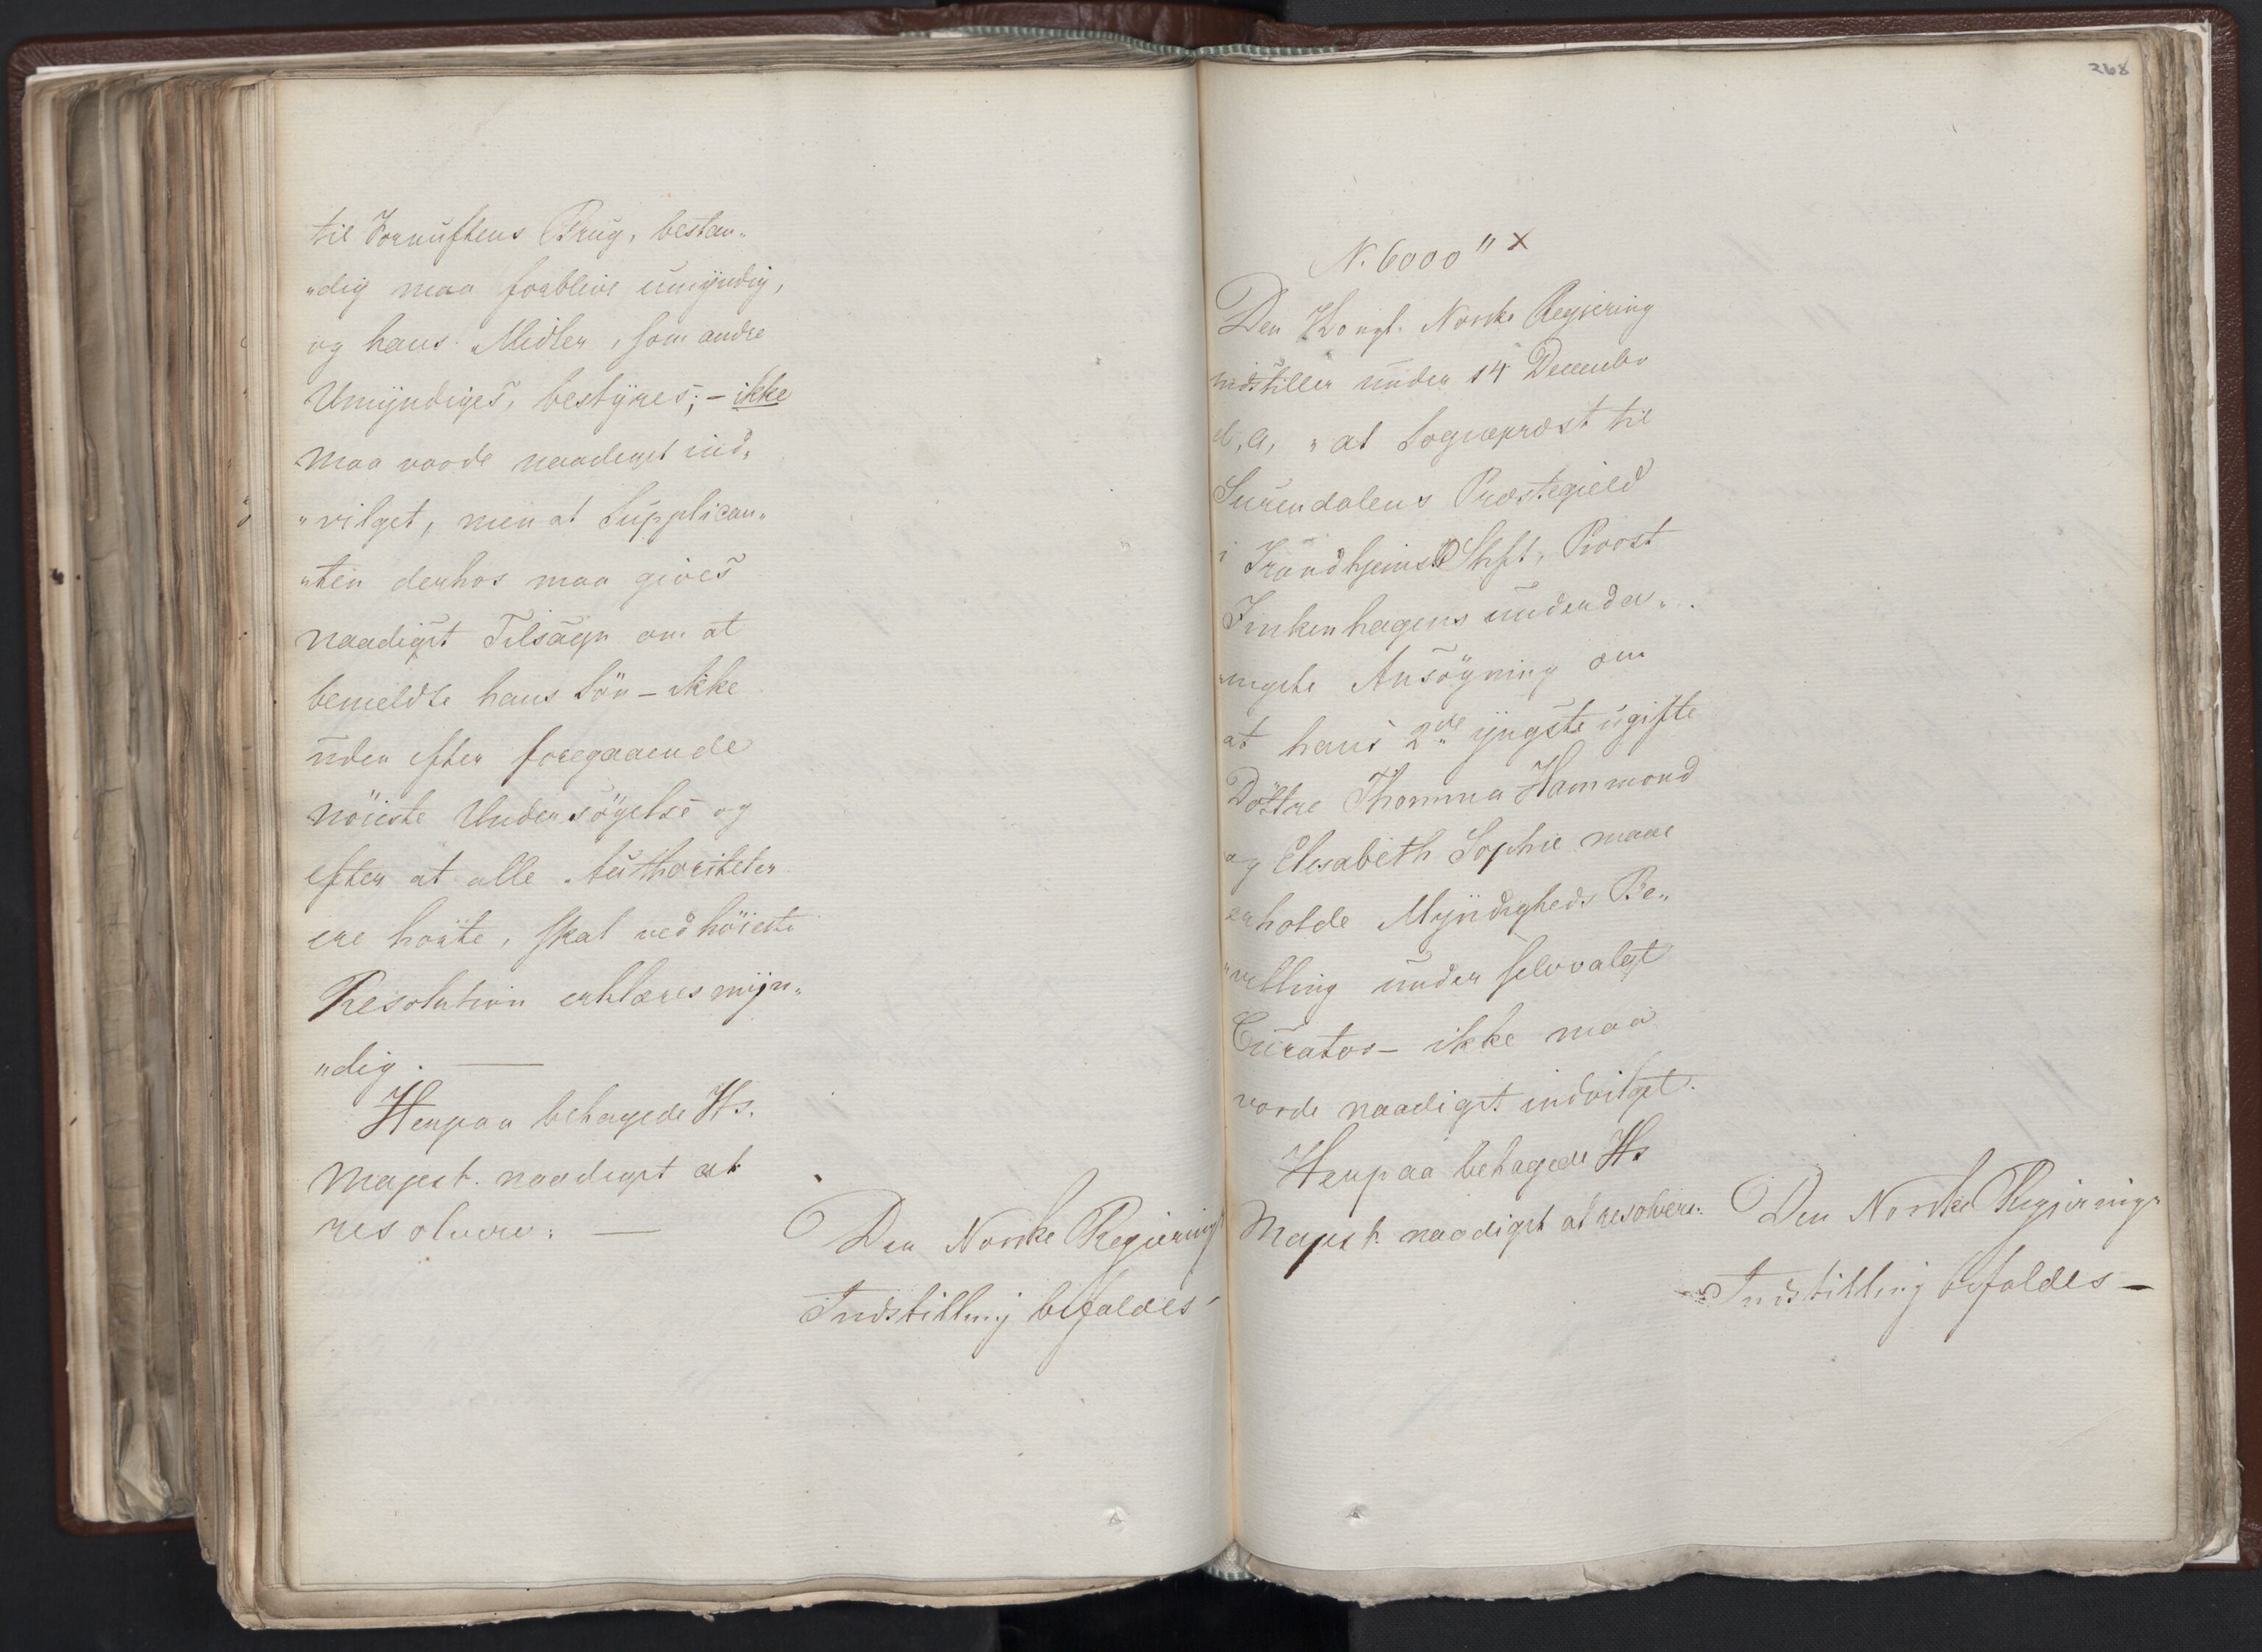 til Fornuftens Brug, bestan„
„dig maa forblive umÿndig,
og hans Midler, som andre
Umÿndiges, bestÿres; – ikke
maa vorde naadigst ind„
„vilget, men at Supplican„
„ten derhos maa gives
naadigst Tilsagn om at
bemeldte hans Sön – ikke
uden efter foregaaende
nöieste Undersögelse og
efter at alle Authoriteter
ere hörte, skal ved höieste
Resolution erklæres mÿn„
„dig. —
Herpaa behagede Hs.
Majest. naadigst at
resolvere: —
Den Norske Regierings
Indstilling bifaldes
268
N. 6000 " x
Den Kongl. Norske Regjering
indstiller under 14 December
d, a, „at Sognepræst til
Surendalens Præstegield
i Trondhjems Stift, Provst
Finkenhagens underda„
„nigste Ansögning om
at hans 2de ÿngste ugifte
Döttre Thomina Hammond
og Elisabeth Sophie maae
erholde Mÿndigheds Be„
„villing under selvvalgt
Curator – ikke maa
vorde naadigst indvilget.
Herpaa behagede Hs
Majest. naadigst at resolvere:
Den Norske Regjerings
Indstilling bifaldes –